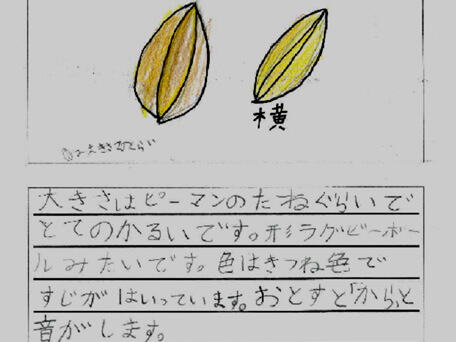 横
大きさはピーマンのたねぐらいで
とてのかるいです。形ラグビーボー
ルみたいです。色はきつね色で
すじがはいっています。おとすと「から」と
音がします。